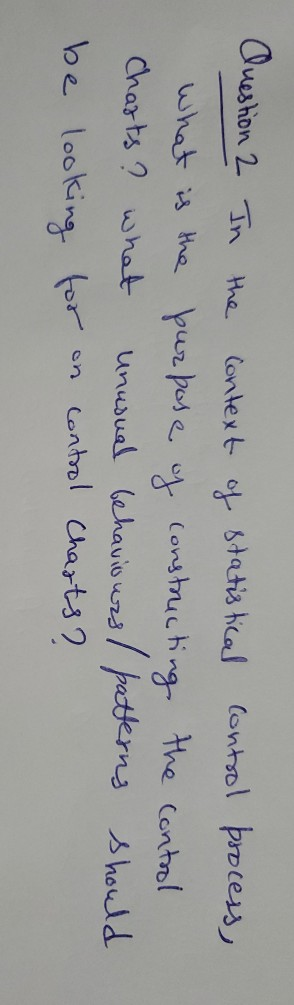 Question 2 In the context of statistical control process,
what is the purpose of constructing the control
charts? what unusual behaviours/patterns should
be looking for on control charts?